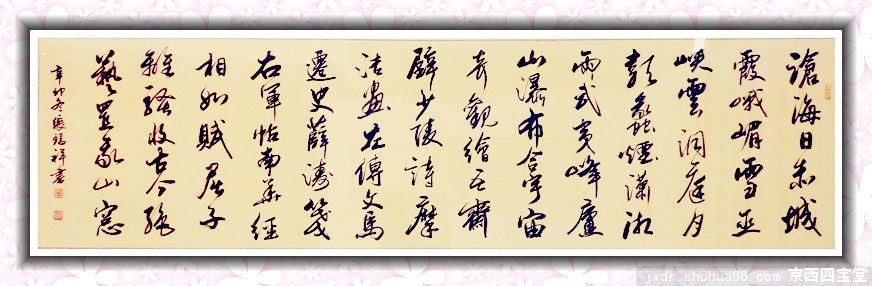 滄海日赤城
霞峨嵋雪巫
峽雲洞庭月
彭蠡煙瀟湘
雨武夷峰廬
山瀑布合宇宙
奇觀繪吾齋
壁少陵詩摩
詰畫左傳文馬
遷史薛濤箋
右軍帖南華經
相如賦屈子
離騷收古今絕
藝置我山窓
辛卯冬張祥書
jxdr.shuhua66.com 京西四宝堂